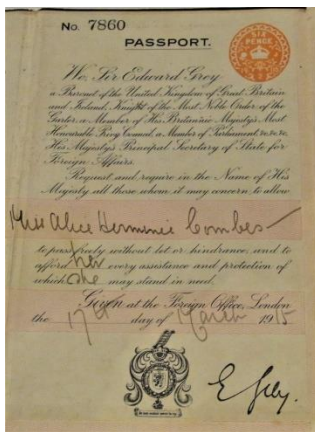 No. 7860
PASSPORT.
SIX
PENCE
We, Sir Edward Grey
a Baronet of the United Kingdom of Great Britain
and Ireland, Knight of the Most Noble Order of the
Garter, a Member of His Britannic Majesty's Most
Honourable Privy Council, a Member of Parliament, &c, &c, &c,
His Majesty's Principal Secretary of State for
Foreign Affairs.
Request and require in the Name of His
Majesty all those whom it may concern to allow
Miss Alice Herminie Combes
to pass freely without let or hindrance, and to
afford her every assistance and protection of
which she may stand in need.
Given at the Foreign Office, London
the 17th day of March 1915
E Grey.